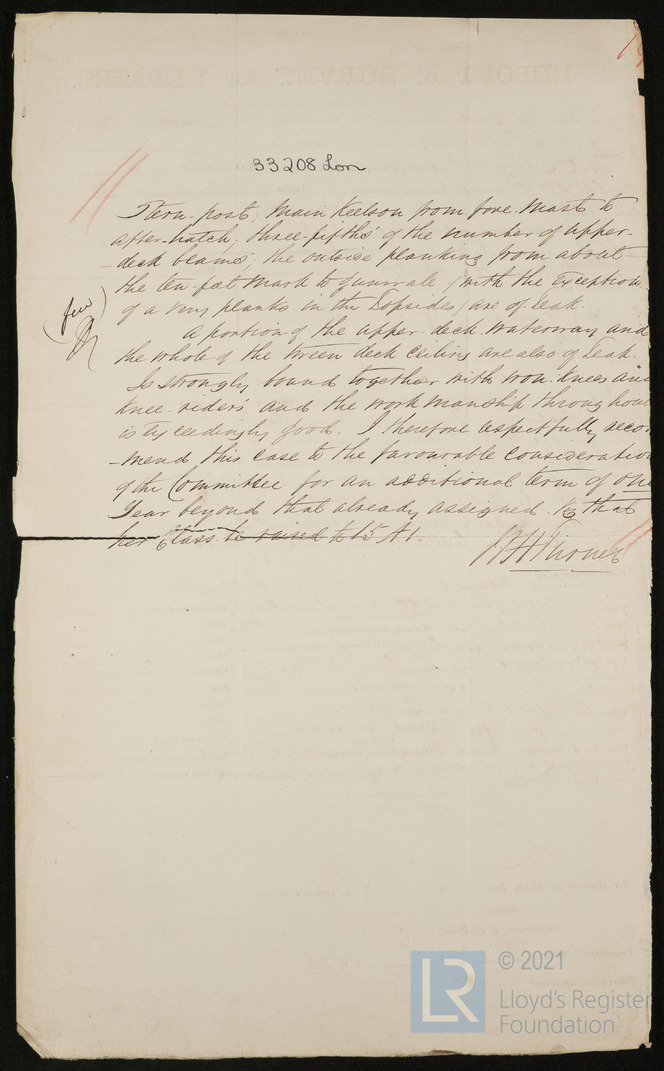 33208 Lon
Stern-post, Main Keelson from fore-mast to
after-hatch, three-fifths of the number of upper-
-deck beams; the outside planking from about
the ten-feet mark to gunwale (with the exception
of a very planks in the topsides) are of Teak.
(few)
A portion of the upper-deck waterway and
the whole of the tween deck ceiling are also of Teak.
Is strongly bound together with iron knees and
knee-riders and the workmanship throughout
is exceedingly good. I therefore respectfully recom
-mend this case to the favourable consideration
of the Committee for an additional term of one
Year beyond that already assigned. that
her Class be raised to 15 A1.
LR
© 2021
Lloyd's Register
Foundation